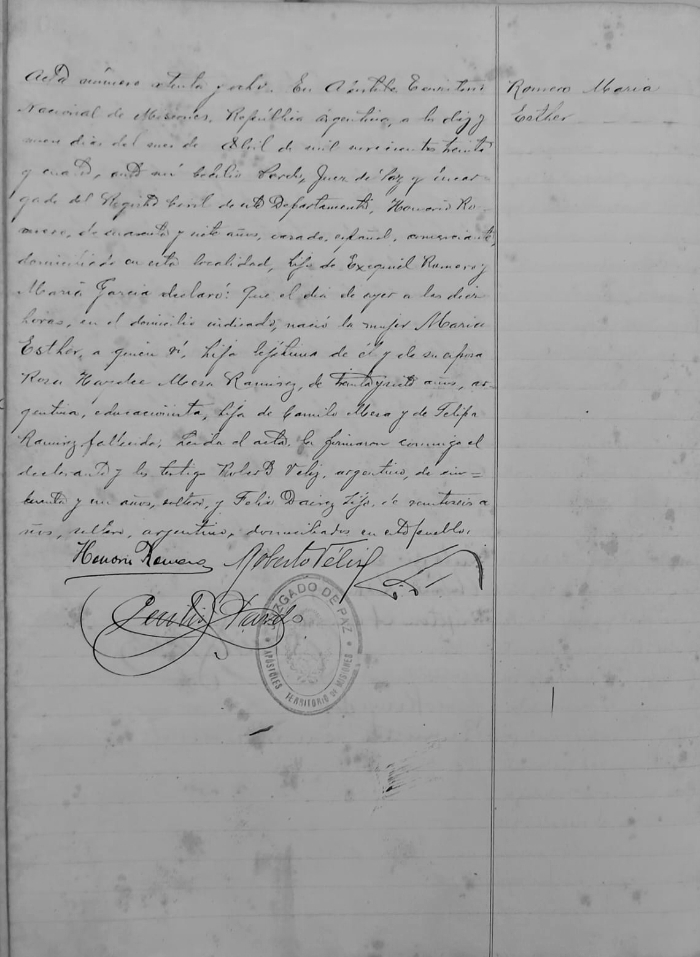 Acta número ochenta y ocho. En Apóstoles Territorio
Nacional de Misiones, República Argentina, a diez y
nueve dias del mes de Abril de mil novecientos treinta
y cuatro, ante mi Juez de Paz y Encar-
gado del Registro Civil de este Departamento, Honorio Ro-
mero, de cuarenta y siete años, casado, español, comerciante,
domiciliado en esta localidad, hijo de Exequiel Romero y
María García declaró: Que el dia de ayer a las diez
horas, en el domicilio indicado, nació la mujer Maria
Esther, a quien vi, hija lejítima de él y de su esposa
Rosa Haydee Mesa Ramirez, de treinta y siete años, ar-
gentina, educacionista, hija de Camilo Mesa y de Felipa
Ramirez fallecidos. Leida el acta, la firmaron conmigo el
declarante y los testigos Roberto Veliz, argentino, de cin-
cuenta y un años, soltero, y Felix hijo, de veintiseis a
ños, soltero, argentino, domiciliados en este pueblo.
Honorio Romero Roberto Veliz
JUZGADO DE PAZ
APOSTOLES TERRITORIO DE MISIONES
Romero Maria
Esther